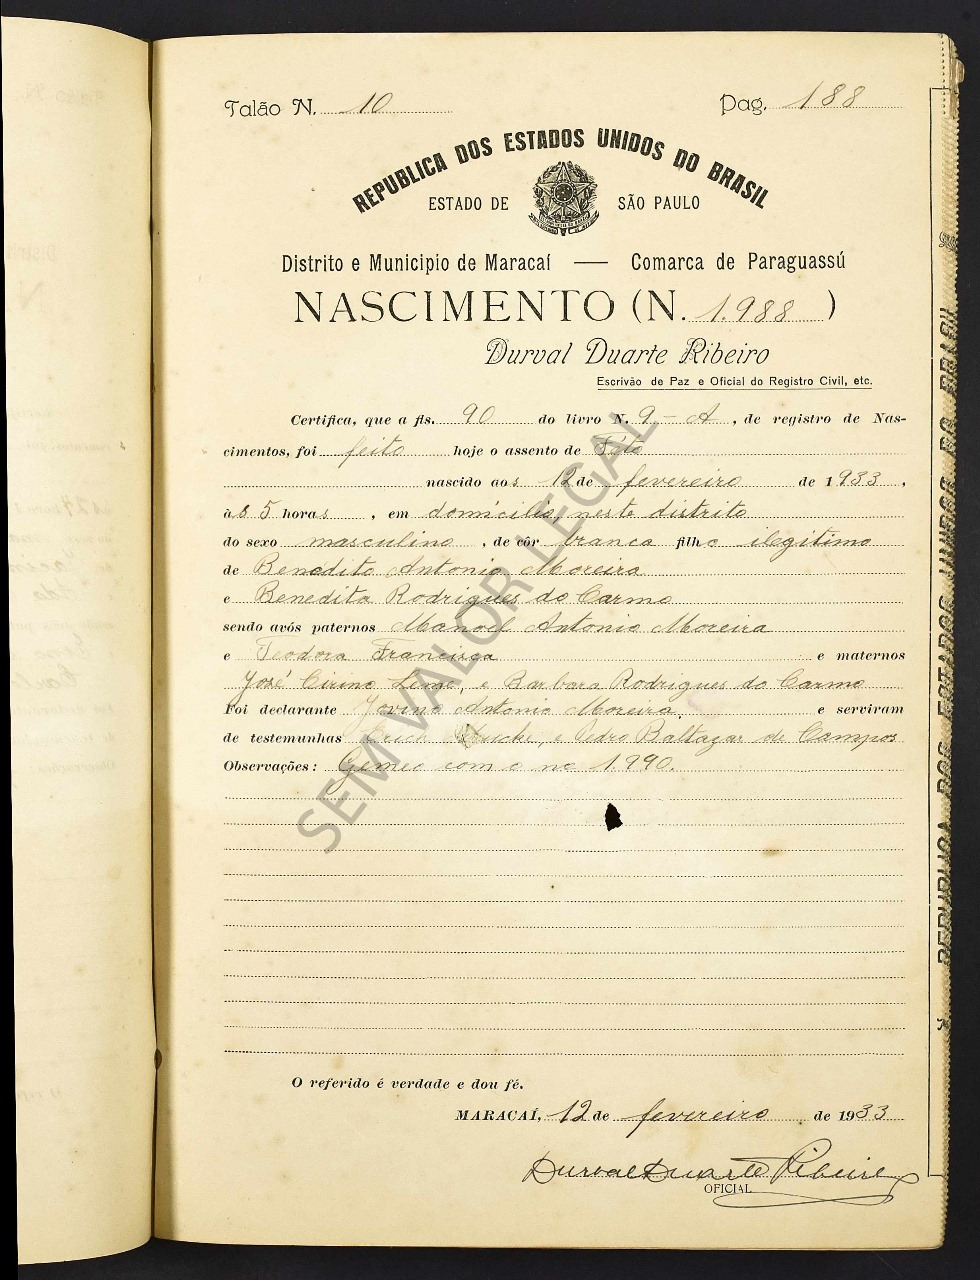 Talão N. 10 Pag. 188
REPUBLICA DOS ESTADOS UNIDOS DO BRASIL
ESTADO DE SÃO PAULO
Distrito e Municipio de Maracaí — Comarca de Paraguassú
NASCIMENTO (N. 1.988 )
Durval Duarte Ribeiro
Escrivão de Paz e Oficial do Registro Civil, etc.
Certifica, que a fls. 90 do livro N. 9-A, de registro de Nas-
cimentos, foi feito hoje o assento de Tito
nascido aos 12 de fevereiro de 1933,
às 5 horas, em domicilio, neste distrito
do sexo masculino, de côr branca filho ilegitimo
de Benedito Antonio Moreira
e Benedita Rodrigues do Carmo
sendo avós paternos Manoel Antonio Moreira
e Teodora Francisca e maternos
José Cirino Leme, e Barbara Rodrigues do Carmo
Foi declarante Jovino Antonio Moreira, e serviram
de testemunhas e Pedro Baltazar de Campos
Observações: Gemeo com o no 1.990.
O referido é verdade e dou fé.
MARACAÍ, 12 de fevereiro de 1933
Durval Duarte Ribeiro
OFICIAL
SEM VALOR LEGAL
REPUBLICA DOS ESTADOS UNIDOS DO BRASIL